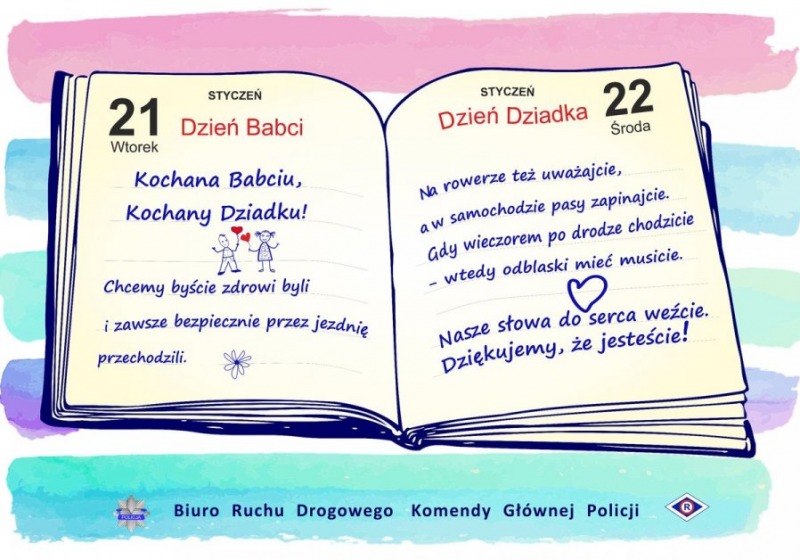 STYCZEŃ
21
Dzień Babci
Wtorek
Kochana Babciu,
Kochany Dziadku!
Chcemy byście zdrowi byli
i zawsze bezpiecznie przez jezdnię
przechodzili.
STYCZEŃ
22
Dzień Dziadka
Środa
Na rowerze też uważajcie,
a w samochodzie pasy zapinajcie.
Gdy wieczorem po drodze chodzicie
– wtedy odblaski mieć musicie.
Nasze słowa do serca weźcie.
Dziękujemy, że jesteście!
POLICJA
Biuro Ruchu Drogowego Komendy Głównej Policji
R